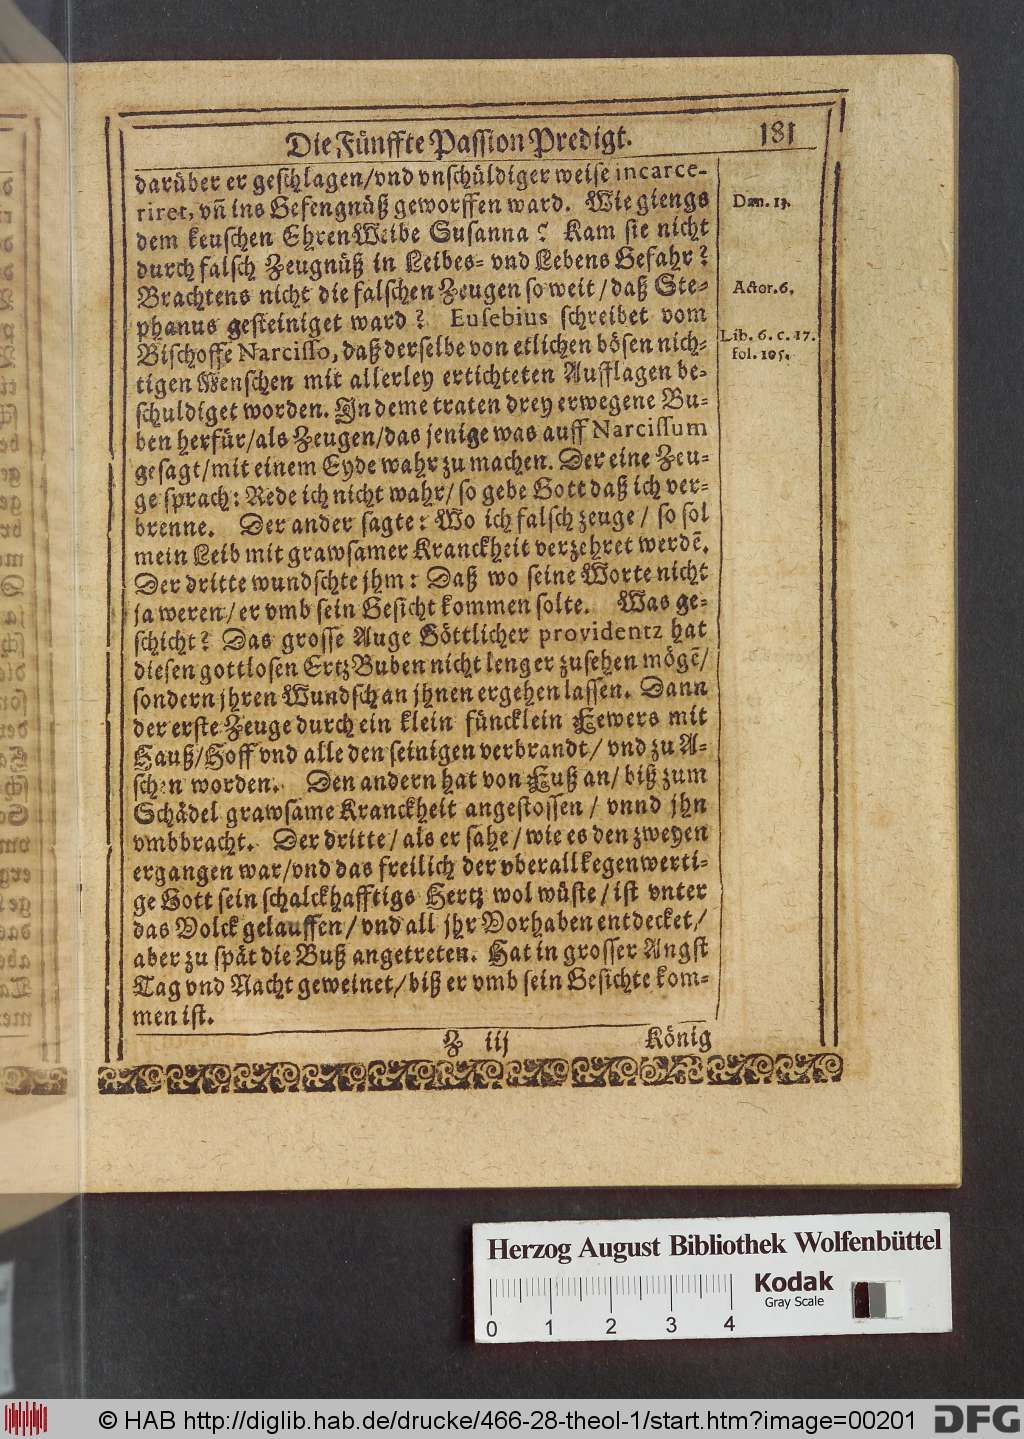 Die Fünffte Passion Predigt. 181
darüber er geschlagen/vnd vnschüldiger weise incarce-
riret, vñ ins Gefengnüß geworffen ward. Wie giengs
Dan. 13.
dem keuschen EhrenWeibe Susanna? Kam sie nicht
durch falsch Zeugnüß in Leibes- vnd Lebens Gefahr?
Brachtens nicht die falschen Zeugen so weit/daß Ste-
Actor. 6.
phanus gesteiniget ward? Eusebius schreibet vom
Lib. 6. c. 17.
Bischoffe Narcisso, daß derselbe von etlichen bösen nich-
fol. 105.
tigen Menschen mit allerley ertichteten Aufflagen be-
schuldiget worden. In deme traten drey erwegene Bu-
ben herfür/als Zeugen/das jenige was auff Narcissum
gesagt/mit einem Eyde wahr zu machen. Der eine Zeu-
ge sprach: Rede ich nicht wahr/so gebe Gott daß ich ver-
brenne. Der ander sagte: Wo ich falsch zeuge/ so sol
mein Leib mit grawsamer Kranckheit verzehret werdẽ.
Der dritte wundschte jhm: Daß wo seine Worte nicht
ja weren/er vmb sein Gesicht kommen solte. Was ge-
schicht? Das grosse Auge Göttlicher providentz hat
diesen gottlosen ErtzBuben nicht lenger zusehen mögẽ/
sondern jhren Wundsch an jhnen ergehen lassen. Dann
der erste Zeuge durch ein klein füncklein Fewers mit
Hauß/Hoff vnd alle den seinigen verbrandt/ vnd zu A-
schen worden. Den andern hat von Fuß an/ biß zum
Schädel grawsame Kranckheit angestossen/ vnnd jhn
vmbbracht. Der dritte/ als er sahe/ wie es den zweyen
ergangen war/vnd das freilich der vberall kegenwerti-
ge Gott sein schalckhafftigs Hertz wol wüste/ ist vnter
das Volck gelauffen/ vnd all jhr Vorhaben entdecket/
aber zu spät die Buß angetreten. Hat in grosser Angst
Tag vnd Nacht geweinet/biß er vmb sein Gesichte kom-
men ist.
Z iij König
Herzog August Bibliothek Wolfenbüttel
Kodak
Gray Scale
0 1 2 3 4
© HAB http://diglib.hab.de/drucke/466-28-theol-1/start.htm?image=00201
DFG